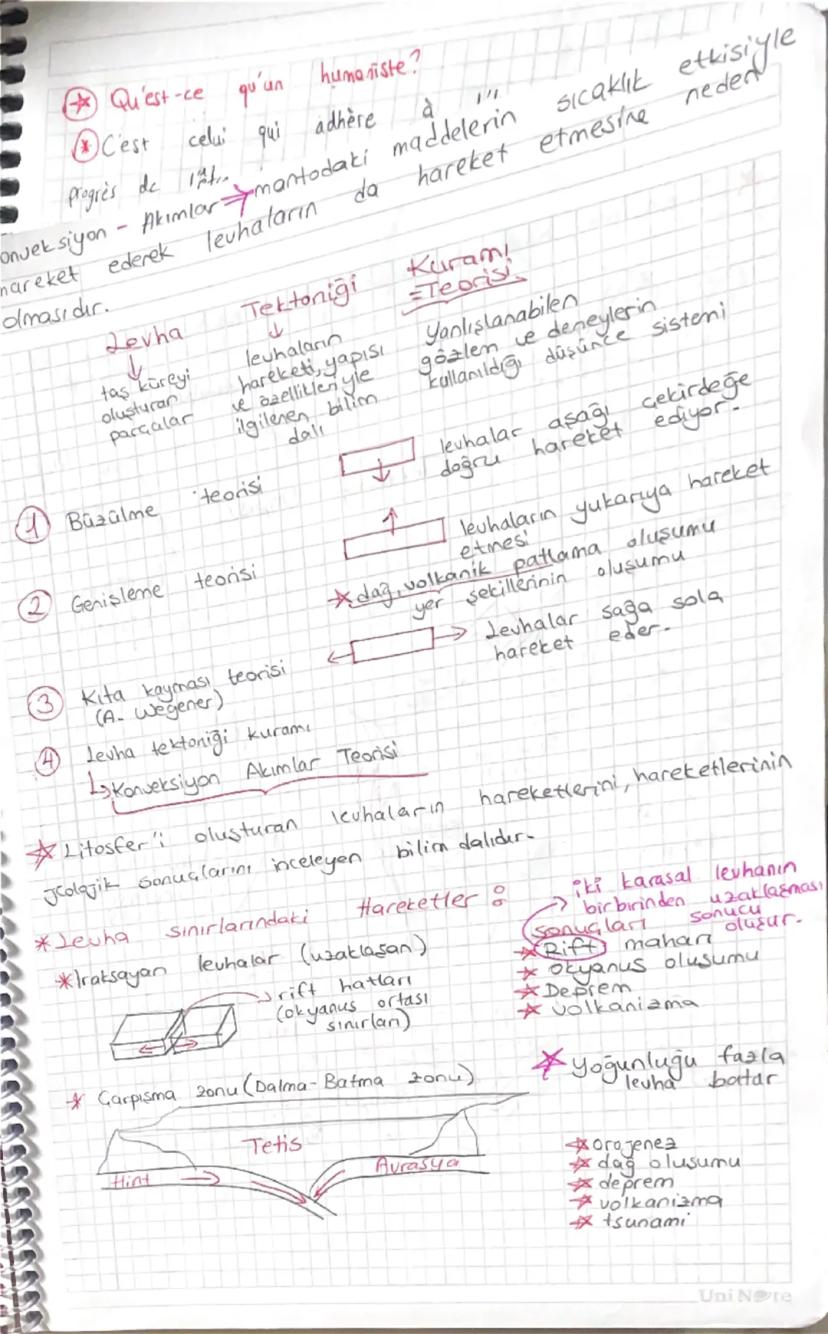 Qu'est-ce qu'un humaniste?
C'est celui qui adhère à
progrès de
Konveksiyon - Akımlar ⇒ mantodaki maddelerin sıcaklık etkisiyle
hareket ederek levhaların da hareket etmesine neden
olmasıdır.
Levha Tektoniği Kuramı
=Teorisi
taş küreyi
oluşturan
parçalar
levhaların
hareketi, yapısı
ve özellikleriyle
ilgilenen bilim
dalı
Yanlışlanabilen
gözlem ve deneylerin
kullanıldığı düşünce sistemi
1 Büzülme teorisi
levhalar aşağı çekirdeğe
doğru hareket ediyor.
2 Genişleme teorisi
levhaların yukarıya hareket
etmesi
dağ, volkanik patlama oluşumu
yer şekillerinin oluşumu
3 Kıta kayması teorisi
(A. Wegener)
Levhalar sağa sola
hareket eder.
4 Levha tektoniği kuramı
↳ Konveksiyon Akımlar Teorisi
Litosfer'i oluşturan levhaların hareketlerini, hareketlerinin
jeolojik sonuçlarını inceleyen bilim dalıdır.
*Levha sınırlarındaki Hareketler:
*Iraksayan levhalar (uzaklaşan)
rift hatları
(okyanus ortası
sınırları)
iki karasal levhanın
birbirinden uzaklaşması
sonucu
oluşur.
sonuçları
Rift
* okyanus oluşumu
* Deprem
* Volkanizma
* Çarpışma zonu (Dalma-Batma zonu)
* Yoğunluğu fazla
levha batar
Tetis
Hint
Avrasya
* orojenez
* dağ oluşumu
* deprem
* volkanizma
* tsunami
Uni Note